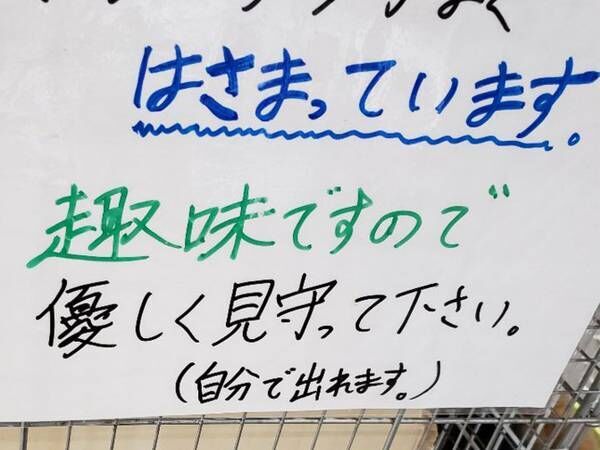 はさまっています。
趣味ですので
優しく見守って下さい。
(自分で出れます。)